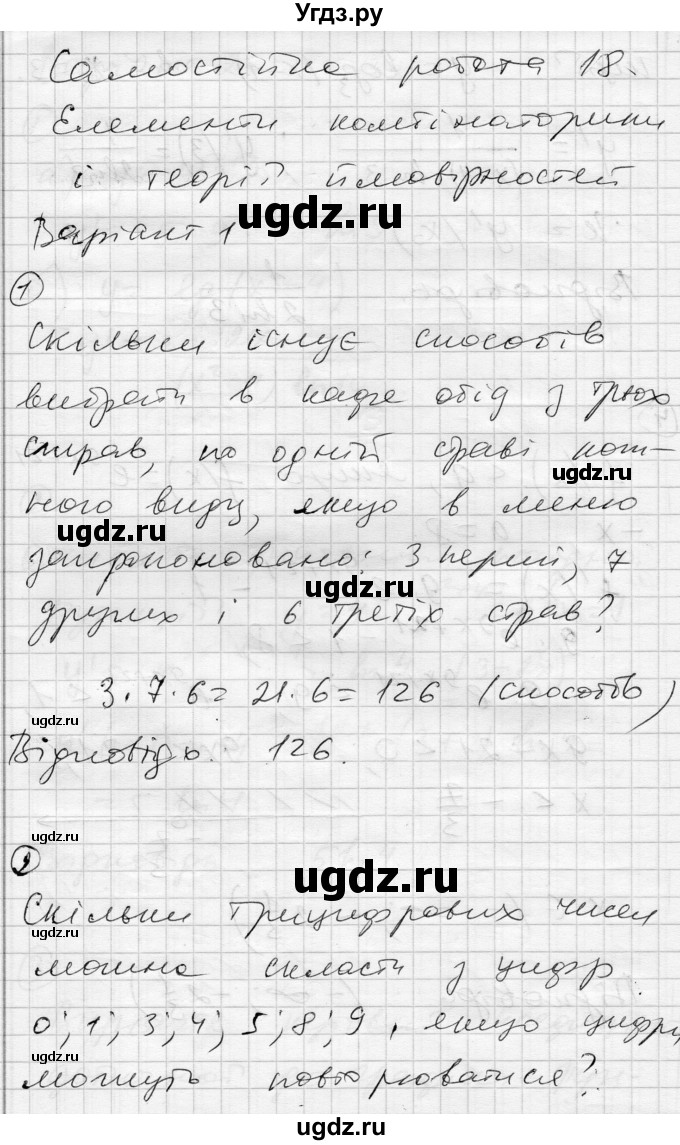 Угдз.ру
Самостійна робота 18.
Елементи комбінаторики
і теорії ймовірностей
ugdz.ru
Варіант 1
1
Скільки існує способів
вибрати в кафе обід з трьох
страв, по одній страві кож-
ugdz.ru
ного виду, якщо в меню
ugdz.ru
запропоновано: 3 перші, 7
ugdz.ru
других і 6 третіх страв?
3 · 7 · 6 = 21 · 6 = 126 (способів)
ugdz.ru
Відповідь: 126.
ugdz.ru
2
ugdz.ru
Скільки трицифрових чисел
ugdz.ru
можна скласти з цифр
0; 1; 3; 4; 5; 8; 9, якщо цифри
ugdz.ru
можуть повторюватися?
ugdz.ru
ugdz.ru